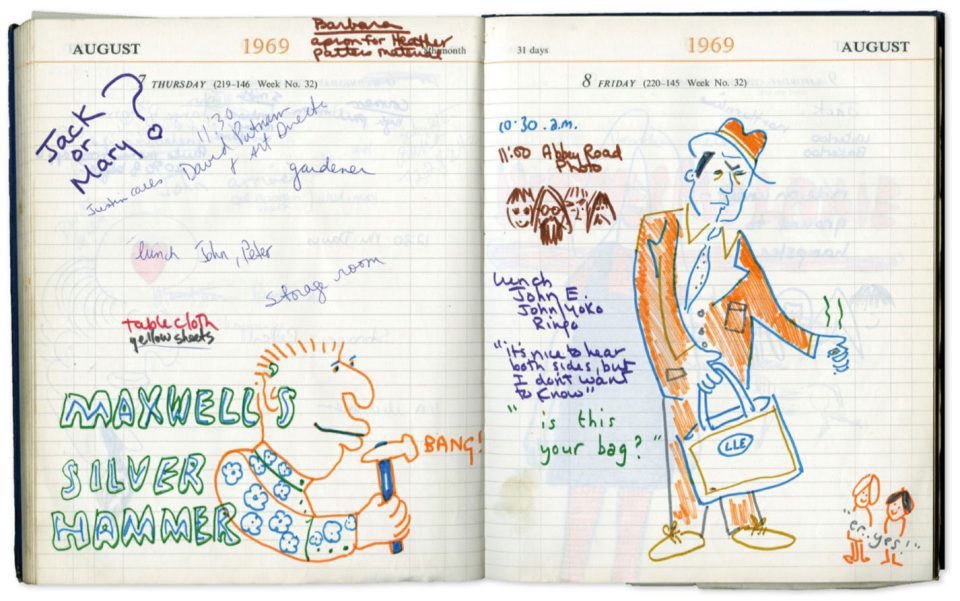 AUGUST
1969
Barbara
apron for Heather
pattern material
8th month
7 THURSDAY (219-146 Week No. 32)
Jack
or
Mary
?
11.30
David Putnam
& Art Director
gardener
lunch John, Peter
storage room
tablecloth
yellow sheets
MAXWELL'S
SILVER
HAMMER
BANG!
31 days
1969
AUGUST
8 FRIDAY (220-145 Week No. 32)
10.30.a.m.
11:00 Abbey Road
Photo
lunch
John E.
John/Yoko
Ringo
"it's nice to hear
both sides, but
I don't want
to know"
"is this
your bag?"
LLE
"er..yes!"